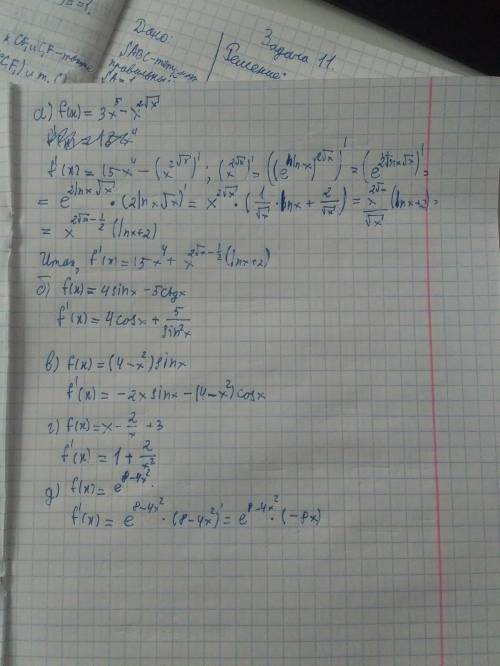 Дано:
Задача 11.
SABC-
Решение:
правильный
SA=1
а) f(x) = 3x⁵ - x^(2√x)
f'(x) = 15x⁴ - (x^(2√x))' ; (x^(2√x))' = ((e^(lnx))^(2√x))' = (e^(2lnx√x))' =
= e^(2lnx√x) · (2lnx√x)' = x^(2√x) · (1/√x · lnx + 2/√x) = x^(2√x)/√x (lnx+2) =
= x^(2√x - 1/2) (lnx+2)
Итак, f'(x) = 15x⁴ + x^(2√x - 1/2) (lnx+2)
б) f(x) = 4sinx - 5ctgx
f'(x) = 4cosx + 5/sin²x
в) f(x) = (4-x²)sinx
f'(x) = -2x sinx - (4-x²)cosx
г) f(x) = x - 2/x + 3
f'(x) = 1 + 2/x²
д) f(x) = e^(8-4x²)
f'(x) = e^(8-4x²) · (8-4x²)' = e^(8-4x²) · (-8x)